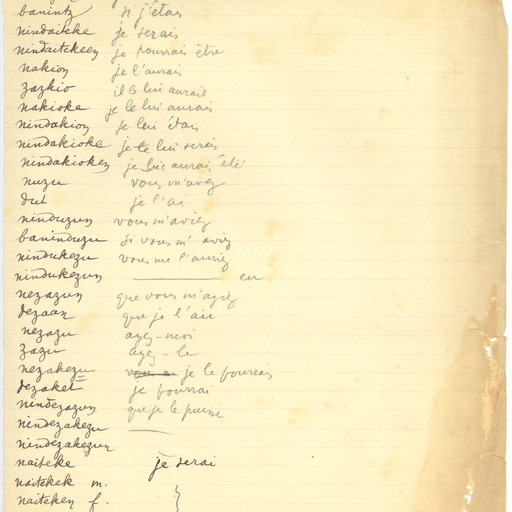 banintz si j'étais
nindaiteke je serais
nindaitekeen je pourrais être
nakion je l'aurais
zazkio il le lui aurait
nakioke je le lui aurais
nindakion je lui étais
nindakioke je te lui serais
nindakioken je lui aurais été
nuzu vous m'avez
dut je l'ai
ninduzun vous m'aviez
baninduzu si vous m'aviez
nindukezu vous me l'auriez
nindukezun eu
nezazun que vous m'ayiez
dezaan que je l'aie
nezazu ayez-moi
zazu ayez-le
nezakezu je le pourrais
dezaket je pourrai
nindezazun que je le puisse
nindezakezu
nindezakezun
naiteke je serai
naitekek m.
naiteken f.